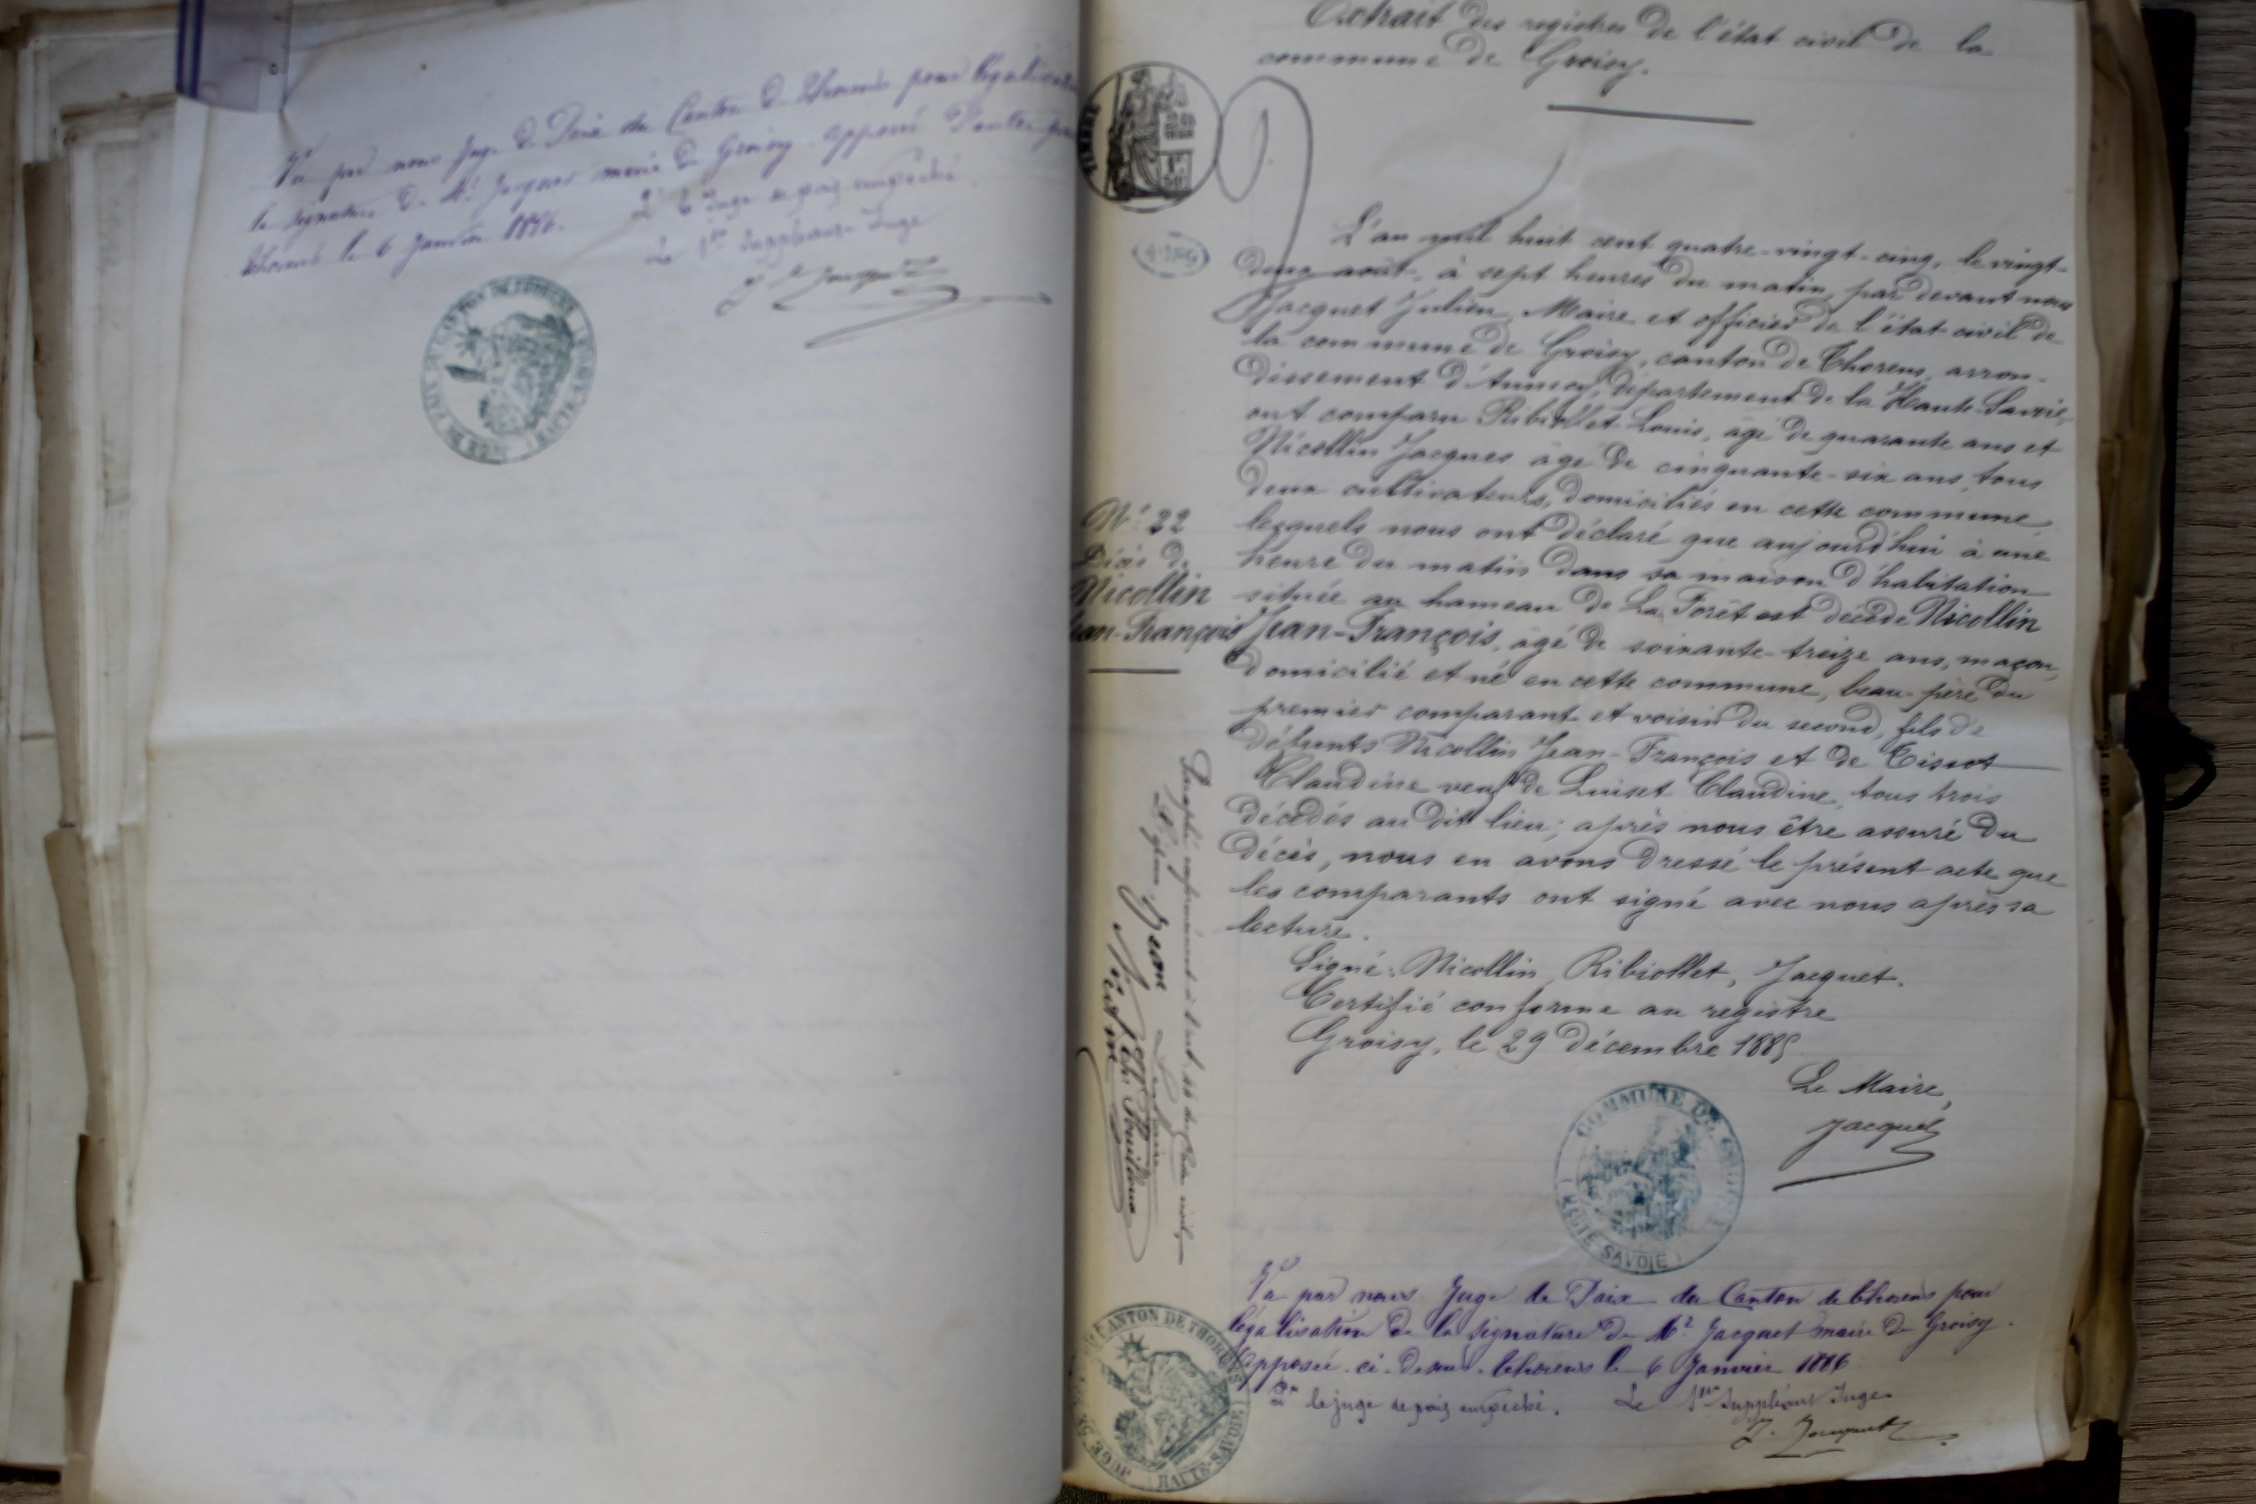 Vu par nous Juge de Paix du Canton de Thorens pour légalisation
la signature de Mr Jacquet maire de Groisy apposée
Thorens le 6 Janvier 1886.
Pr le Juge de paix empêché
Le 1er Suppléant Juge
Extrait des registres de l'état civil de la
commune de Groisy.
L'an mil huit cent quatre-vingt-cinq, le vingt-
deux août, à sept heures du matin, par devant nous
Jacquet Julien, Maire et officier de l'état-civil de
la commune de Groisy, canton de Thorens, arron-
dissement d'Annecy, département de la Haute-Savoie,
ont comparu Ribiollet Louis, âgé de quarante ans et
Nicollin Jacques âgé de cinquante-six ans, tous
deux cultivateurs, domiciliés en cette commune
lesquels nous ont déclaré que aujourd'hui à une
heure du matin dans sa maison d'habitation
située au hameau de La Forêt est décédé Nicollin
Jean-François, âgé de soixante-treize ans, maçon,
domicilié et né en cette commune, beau-père du
premier comparant et voisin du second, fils de
défunts Nicollin Jean-François et de Tissot
Claudine veuf de Luiset Claudine, tous trois
décédés au dit lieu; après nous être assuré du
décès, nous en avons dressé le présent acte que
les comparants ont signé avec nous après sa
lecture.
Signé: Nicollin, Ribiollet, Jacquet.
Certifié conforme au registre
Groisy, le 29 décembre 1885
Le Maire,
Jacquet
N° 22
Décès de
Nicollin
Jean-François
COMMUNE DE GROISY
HAUTE SAVOIE
Vu par nous Juge de Paix du Canton de Thorens pour
légalisation de la signature de Mr Jacquet maire de Groisy.
apposée ci-dessus. Thorens le 6 Janvier 1886
Pr le juge de paix empêché. Le 1er Suppléant Juge.
CANTON DE THORENS
HAUTE-SAVOIE